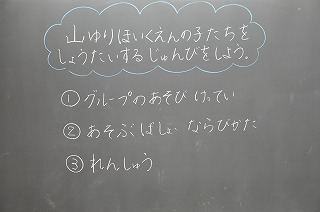 山ゆりほいくえんの子たちを
しょうたいするじゅんびをしよう。
① グループのあそび けってい
② あそぶばしょ ならびかた
③ れんしゅう